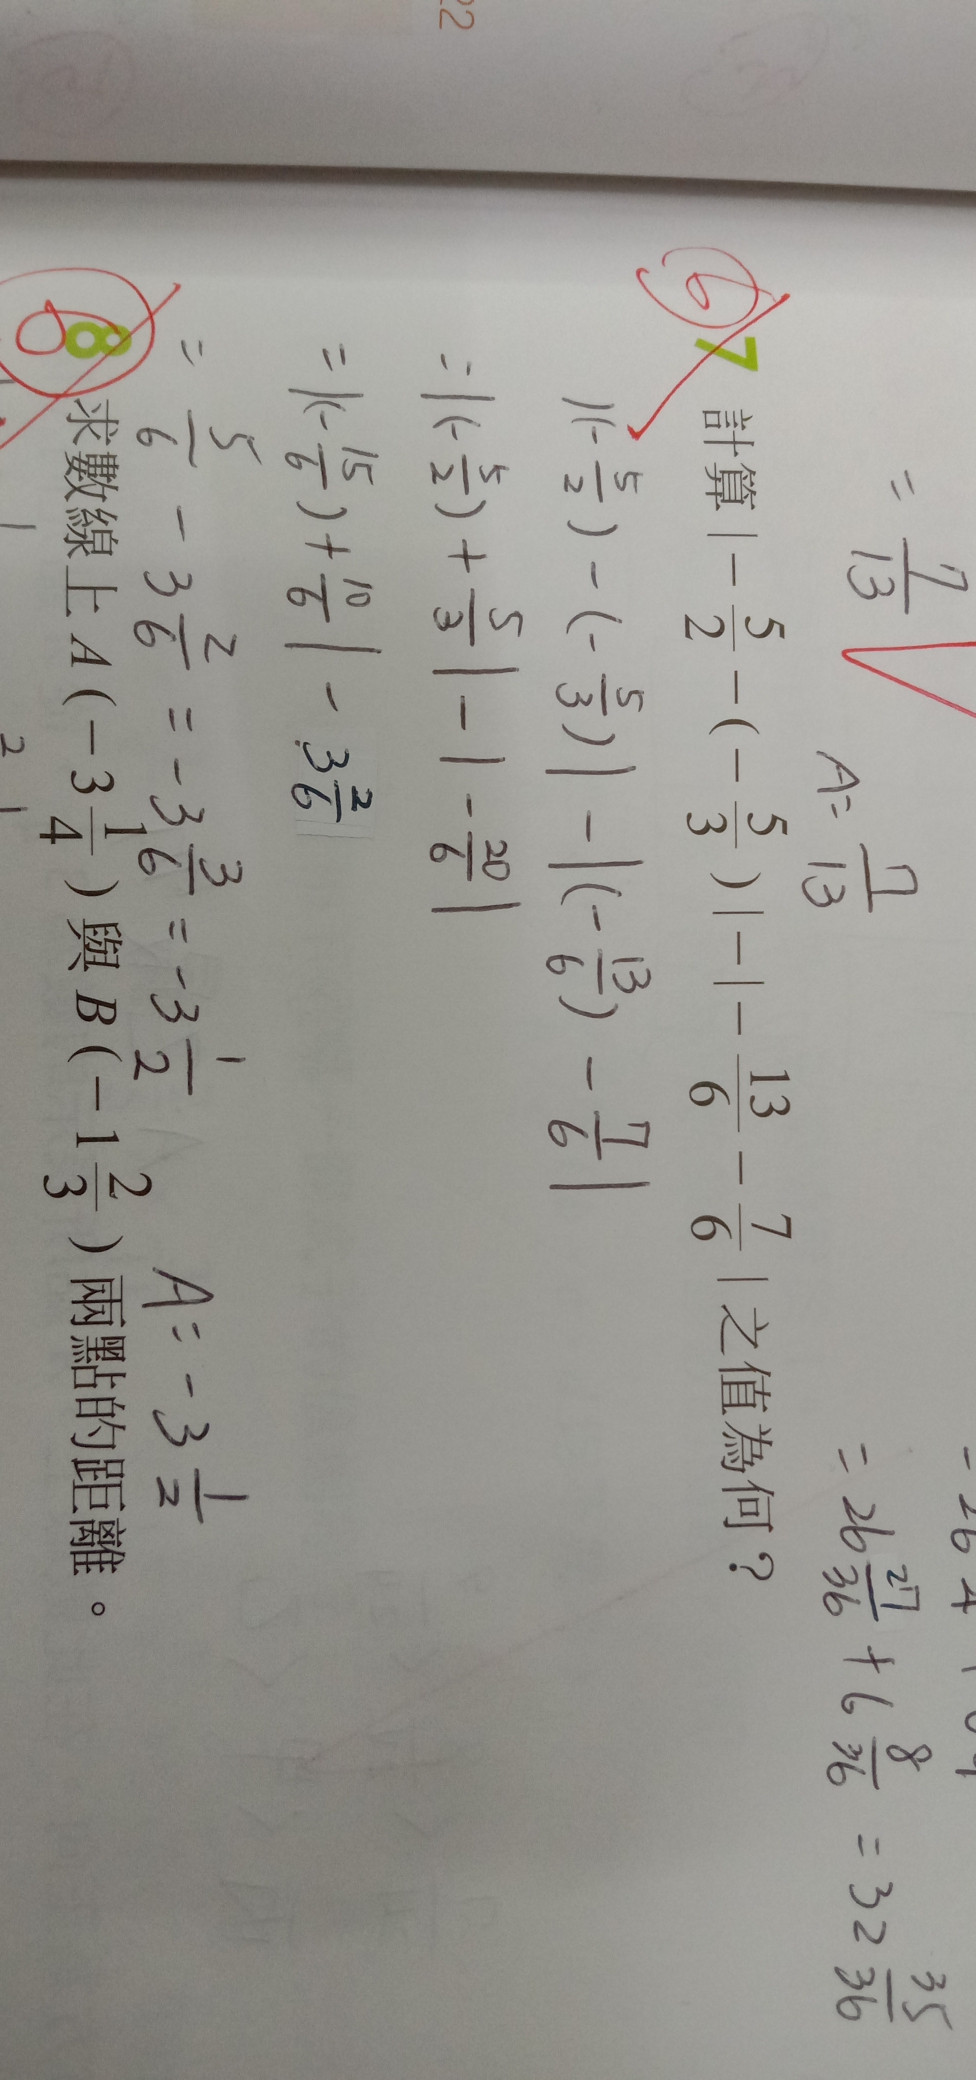 22
= 7/13
A= 7/13
= 26 27/36 + 6 8/36 = 32 35/36
6
7 計算 | - 5/2 - ( - 5/3 ) | - | - 13/6 - 7/6 | 之值為何？
|(- 5/2) - (- 5/3)| - |(- 13/6) - 7/6|
= |(- 5/2) + 5/3| - | - 20/6|
= |(- 15/6) + 10/6| - 3 2/6
= 5/6 - 3 2/6 = - 3 3/6 = - 3 1/2 A= - 3 1/2
8 求數線上 A ( - 3 1/4 ) 與 B ( - 1 2/3 ) 兩點的距離。